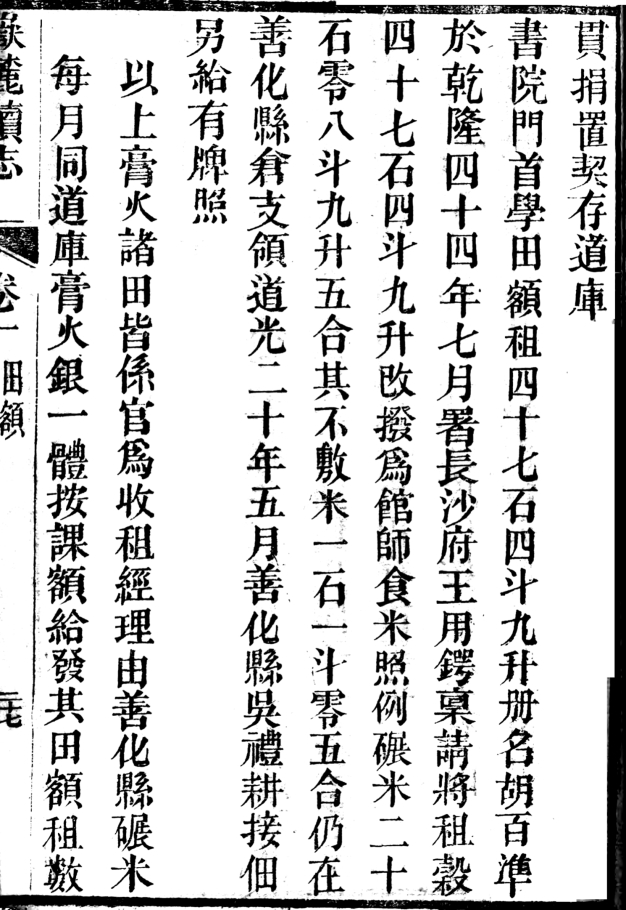 貫捐置契存道庫
書院門首學田額租四十七石四斗九升册名胡百準
於乾隆四十四年七月署長沙府王用鍔稟請將租穀
四十七石四斗九升改撥爲館師食米照例碾米二十
石零八斗九升五合其不敷米一石一斗零五合仍在
善化縣倉支領道光二十年五月善化縣吳禮耕接佃
另給有牌照
以上膏火諸田皆係官爲收租經理由善化縣碾米
每月同道庫膏火銀一體按課額給發其田額租數
嶽麓續志
卷一
田額